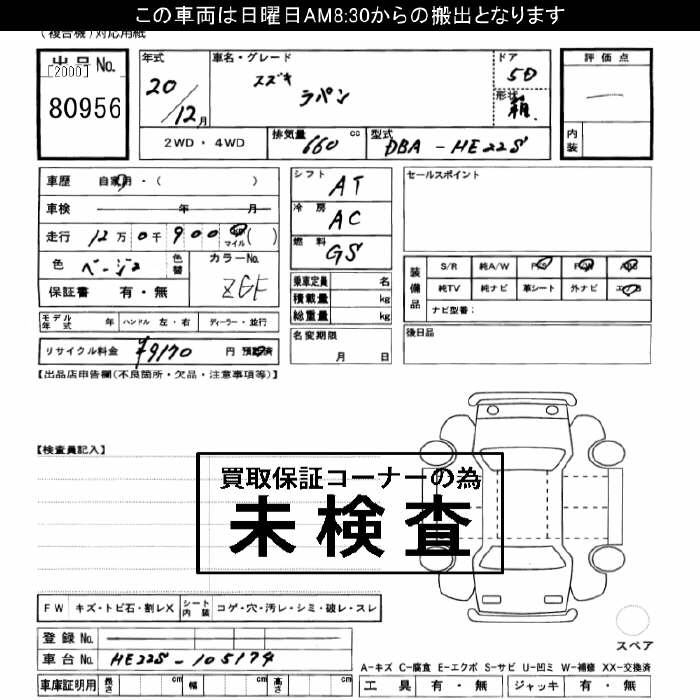 この車両は日曜日AM8:30からの搬出となります
(複合機)対応用紙
出品No. [2000] 80956
年式 20/12月
車名・グレード スズキ ラパン
ドア 5D
形状 箱
評価点 —
内装
2WD・4WD
排気量 660 cc
型式 DBA-HE22S
車歴 自家用・( )
車検 年 月
走行 12万0千900 km マイル( )
色 ベージュ 色替 カラーNo. ZGF
保証書 有・無
シフト AT
冷房 AC
燃料 GS
乗車定員 名
積載量 kg
総重量 kg
セールスポイント
装備品 S/R 純A/W P/S P/W ABS
純TV 純ナビ 革シート 外ナビ エアB
ナビ型番:
モデル年式 年 ハンドル 左・右 ディーラー・並行
リサイクル料金 ¥9170 円 預託済
名変期限 月 日
後日品
【出品店申告欄(不良箇所・欠品・注意事項等)】
【検査員記入】
買取保証コーナーの為
未検査
FW キズ・トビ石・割レX シート内装 コゲ・穴・汚レ・シミ・破レ・スレ
登録No.
車台No. HE22S-105174
スペア
A-キズ C-腐食 E-エクボ S-サビ U-凹ミ W-補修 XX-交換済
車庫証明用 長さ cm 幅 cm 高さ cm
工具 有・無 ジャッキ 有・無